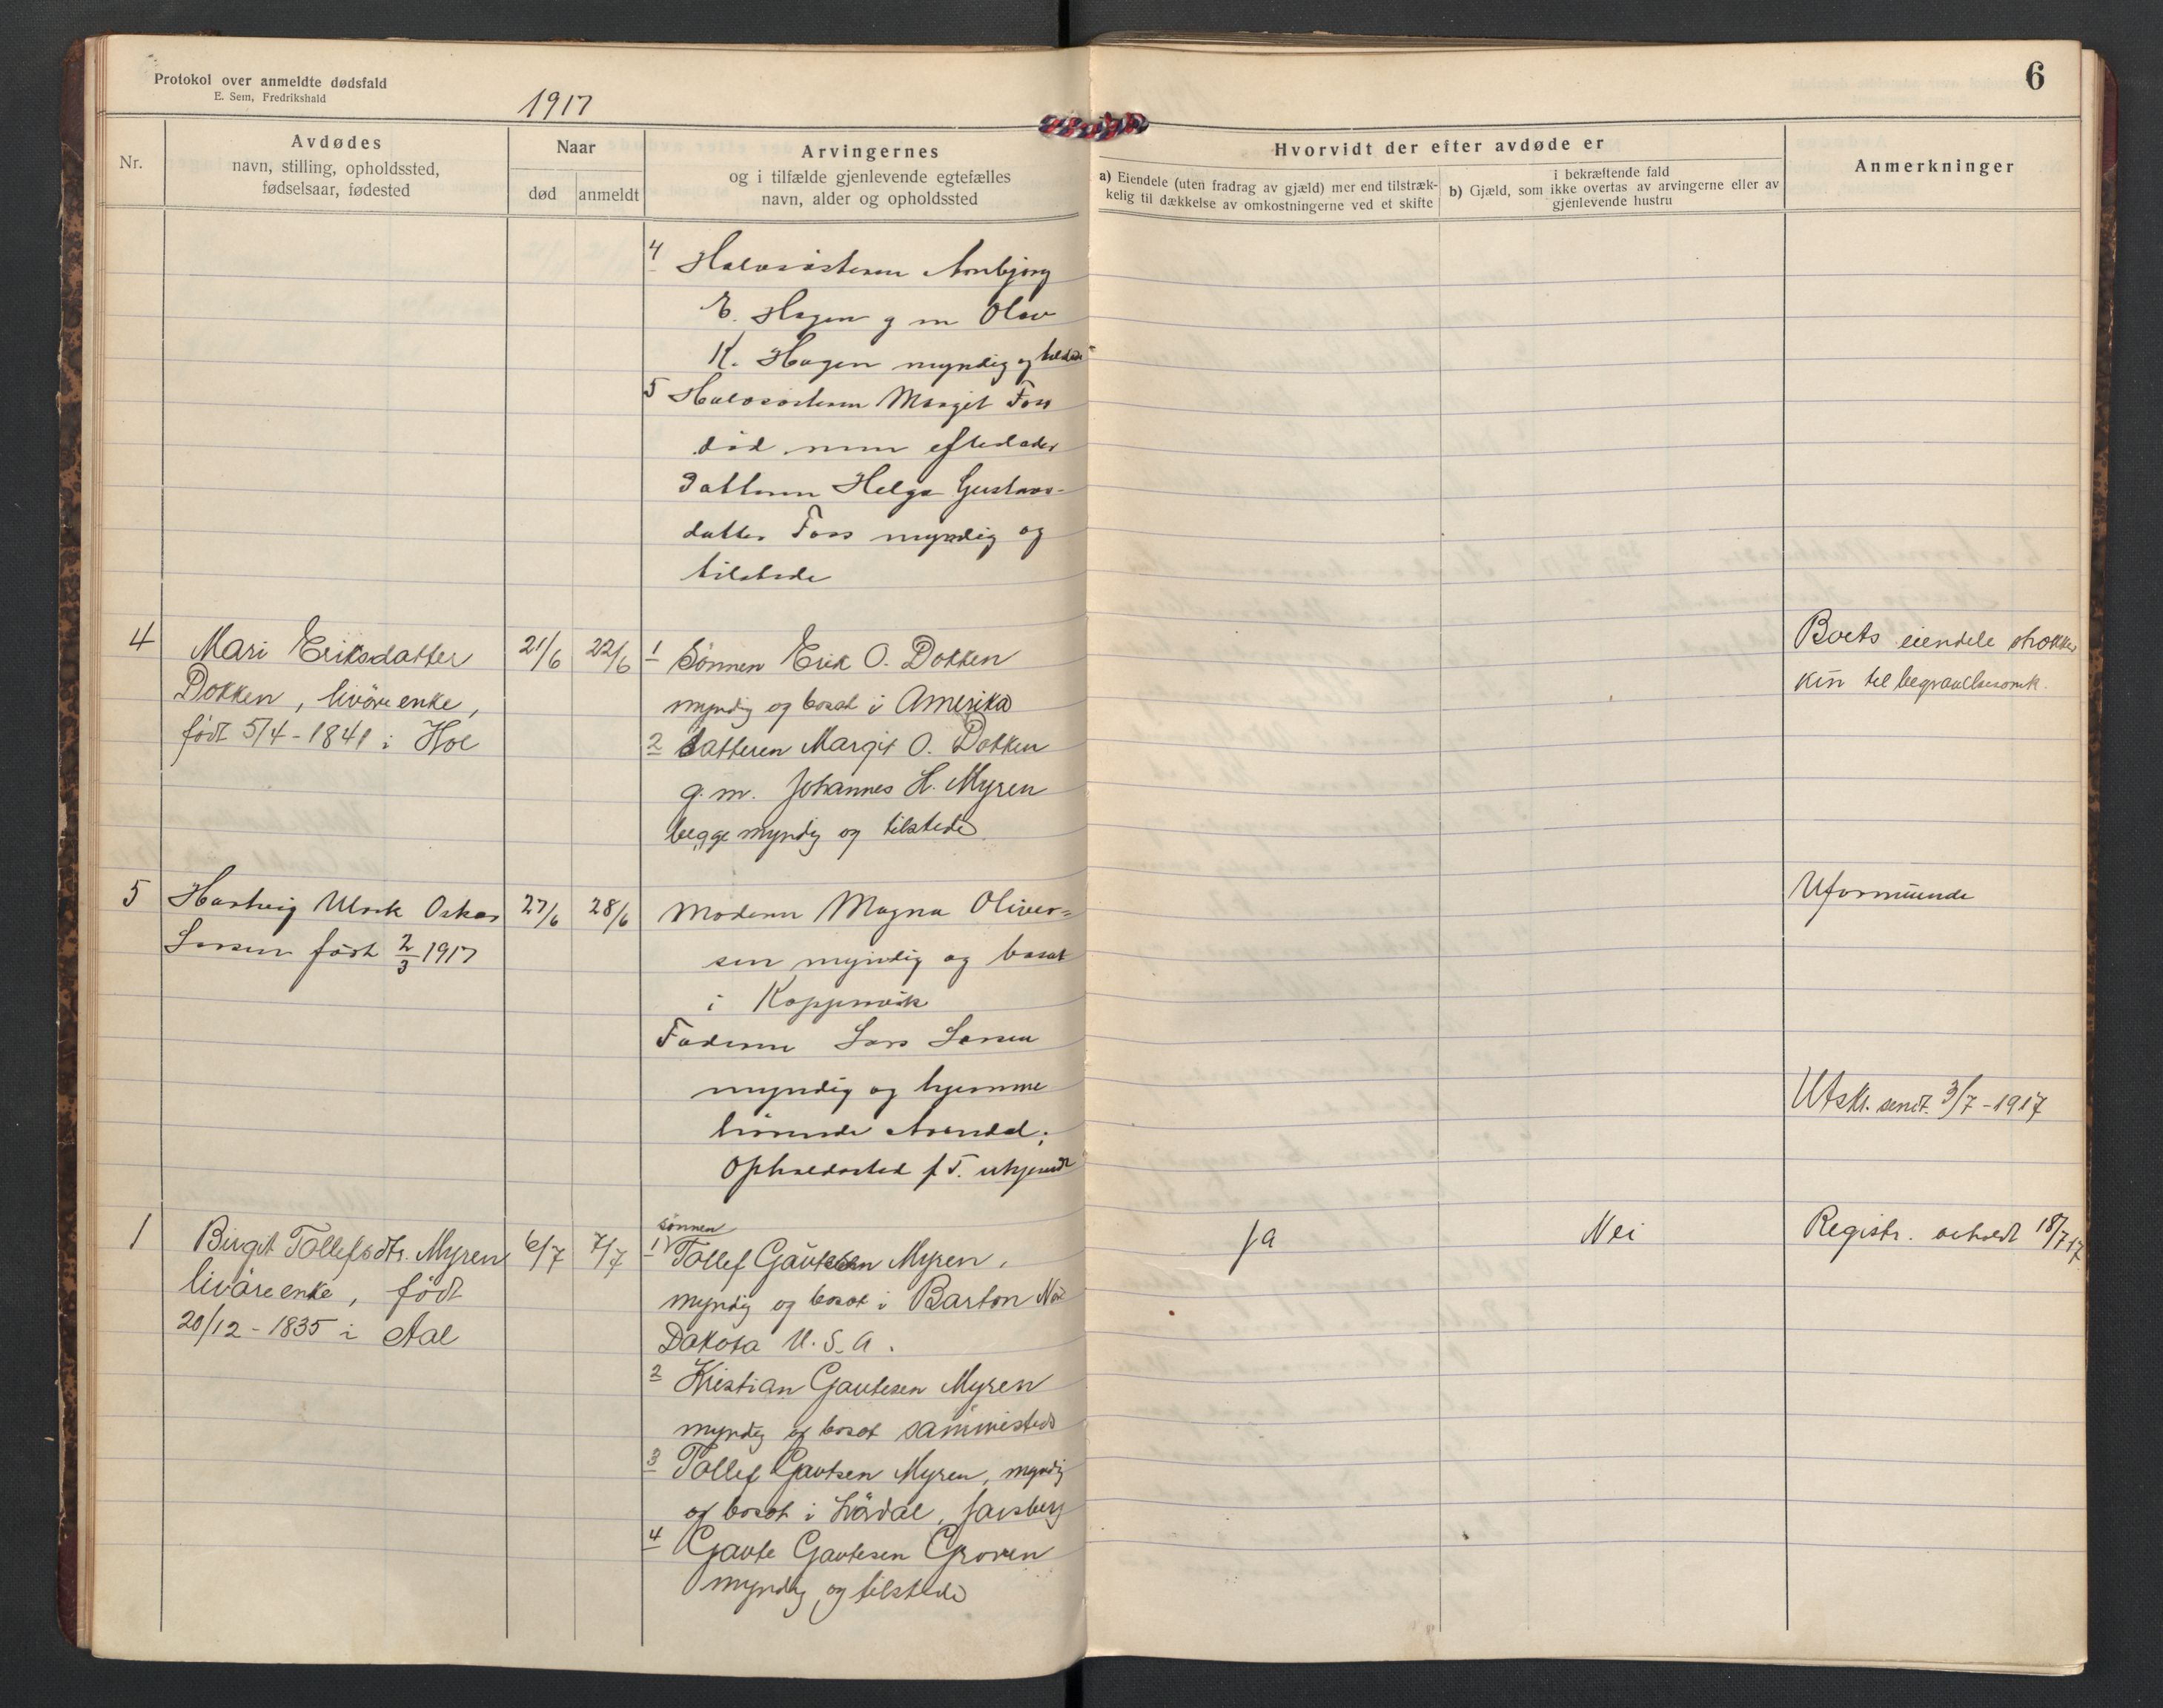 Protokol over anmeldte dødsfald
E. Sem, Fredrikshald
1917
6
Nr.
Avdødes
navn, stilling, opholdssted,
fødselsaar, fødested
Naar
død
anmeldt
Arvingernes
og i tilfælde gjenlevende egtefælles
navn, alder og opholdssted
Hvorvidt der efter avdøde er
a) Eiendele (uten fradrag av gjæld) mer end tilstræk-
kelig til dækkelse av omkostningerne ved et skifte
i bekræftende fald
b) Gjæld, som ikke overtas av arvingerne eller av
gjenlevende hustru
Anmerkninger
4 Halvsøsteren Arnbjørg
E. Hagen g m Olav
K. Hagen myndig og
5 Halvsøsteren Margit Foss
død men efterlader
Datteren Helga Gustavs-
datter Foss myndig og
tilstede
4
Mari Eriksdatter
Dokken, livøre enke,
født 5/4-1841 i Hol
21/6
22/6
1 Sønnen Erik O. Dokken
myndig og bosat i Amerika
2 Datteren Margit O. Dokken
g.m. Johannes H. Myren
begge myndig og tilstede
Boets eiendele strækker
kun til begravelsesomk.
5
Hartvig Ulrik Oskar
Larsen født 2/3 1917
27/6
28/6
Moderen Magna Oliver=
sen myndig og bosat
i Koppervik
Faderen Lars Larsen
myndig og hjemme
hørende Arendal;
Opholdssted f.T. ukjendt
Uformuende
Utskr. sendt. 3/7-1917
1
Birgit Tollefsdtr. Myren
livøreenke, født
20/12-1835 i Aal
6/7
7/7
sønnen
1 Tollef Gautesen Myren,
myndig og bosat i Barton
Dakota U.S.A.
2 Kristian Gautesen Myren
myndig og bosat sammesteds
3 Tollef Gautsen Myren, myndig
og bosat i Lårdal, Jarlsberg
4 Gaute Gautesen Groven
myndig og tilstede
Ja
Nei
Registr. avholdt 18/7 17